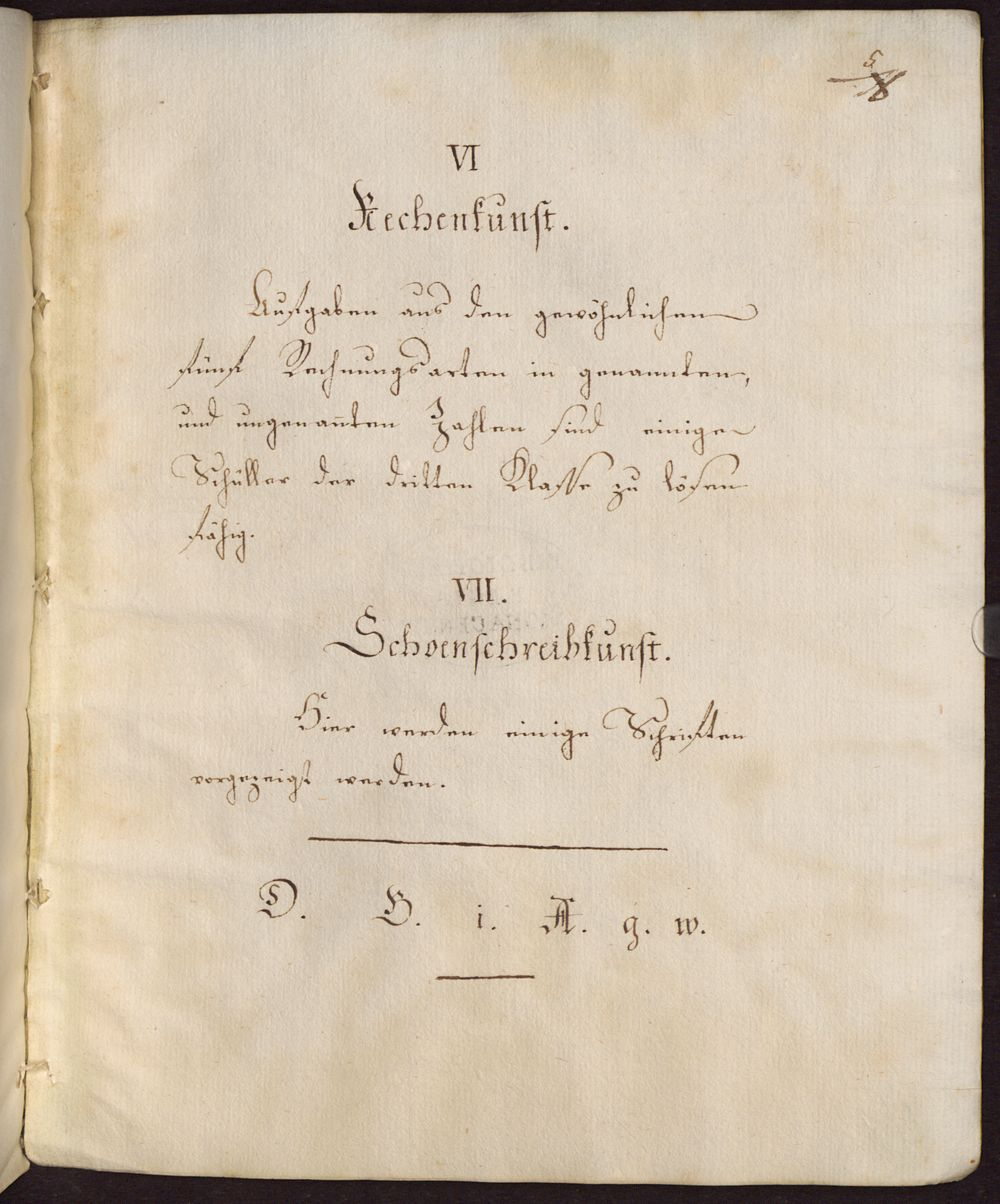 5
8
VI
Rechenkunst.
Aufgaben aus den gewöhnlichen
fünf Rechnungsarten in genannten,
und ungenan̄ten Zahlen sind einige
Schüller der dritten Klasse zu lösen
fähig.
VII.
Schoenschreibkunst.
Hier werden einige Schriften
vorgezeigt werden.
D. G. i. A. g. w.